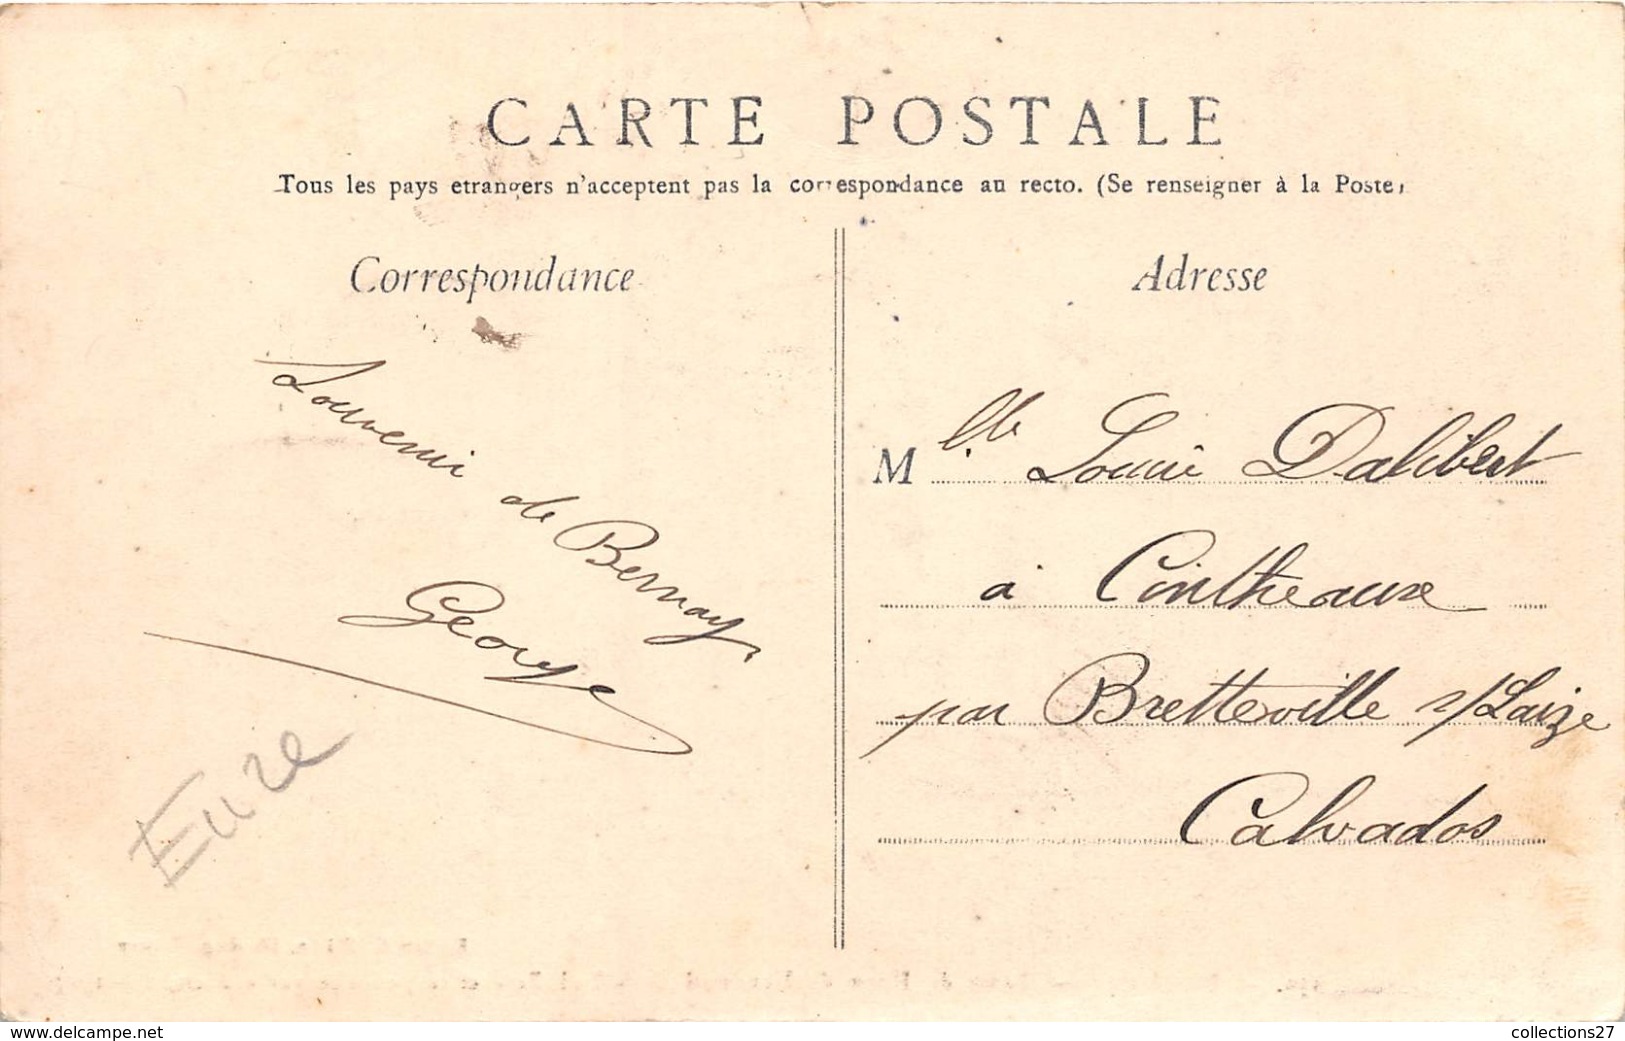 CARTE POSTALE
Tous les pays etrangers n'acceptent pas la correspondance au recto. (Se renseigner à la Poste)
Correspondance
Souvenir
de Bernay
George
Eure
Adresse
Mlle Louise Dalibert
à Cintheaux
par Bretteville s/Laize
Calvados
www.delcampe.net
collections27